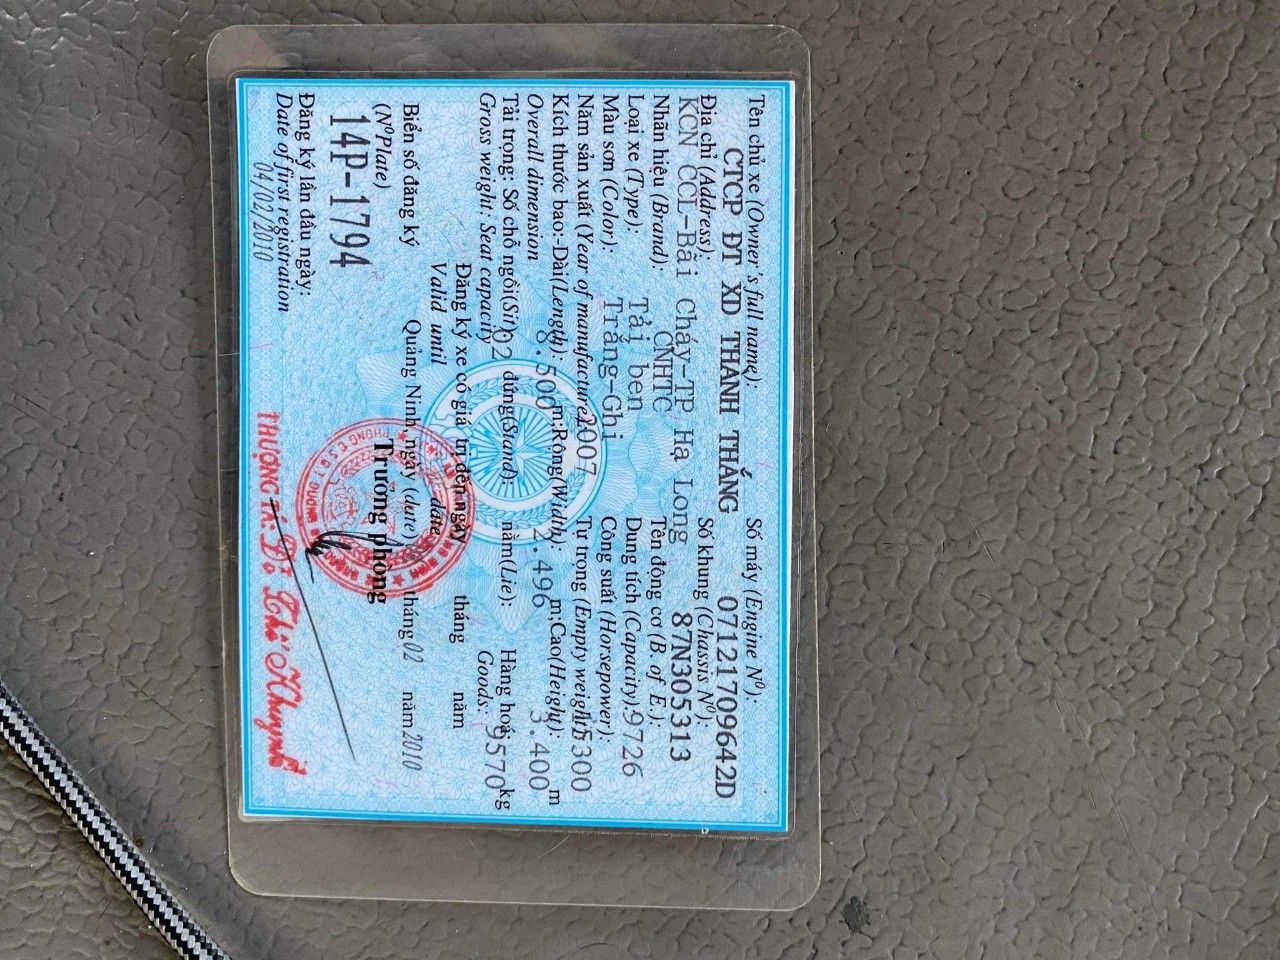 Tên chủ xe (Owner's full name):
CTCP ĐT XD THÀNH THẮNG
Địa chỉ (Address):
KCN CCL-Bãi Cháy-TP Hạ Long
Nhãn hiệu (Brand): CNHTC
Loại xe (Type): Tải ben
Màu sơn (Color): Trắng-Ghi
Năm sản xuất (Year of manufacture): 2007
Số máy (Engine Nº):
07121709642D
Số khung (Chassis Nº):
87N305313
Tên động cơ (B. of E.):
Dung tích (Capacity): 9726
Công suất (Horsepower):
Tự trọng (Empty weight): 15300
Kích thước bao:-Dài(Length): 8.500 m;Rộng(Width): 2.496 m;Cao(Height): 3.400 m
Overall dimension
Tải trọng: Số chỗ ngồi(Sit) 02 đứng(Stand): nằm(Lie): Hàng hoá: 9570 kg
Gross weight: Seat capacity Goods:
Đăng ký xe có giá trị đến ngày tháng năm
Valid until date
Biển số đăng ký
(NºPlate)
14P-1794
Quảng Ninh, ngày (date) tháng 02 năm 2010
Trưởng phòng
Đăng ký lần đầu ngày:
Date of first registration
04/02/2010
THƯỢNG TÁ: Đỗ Thị Khuynh